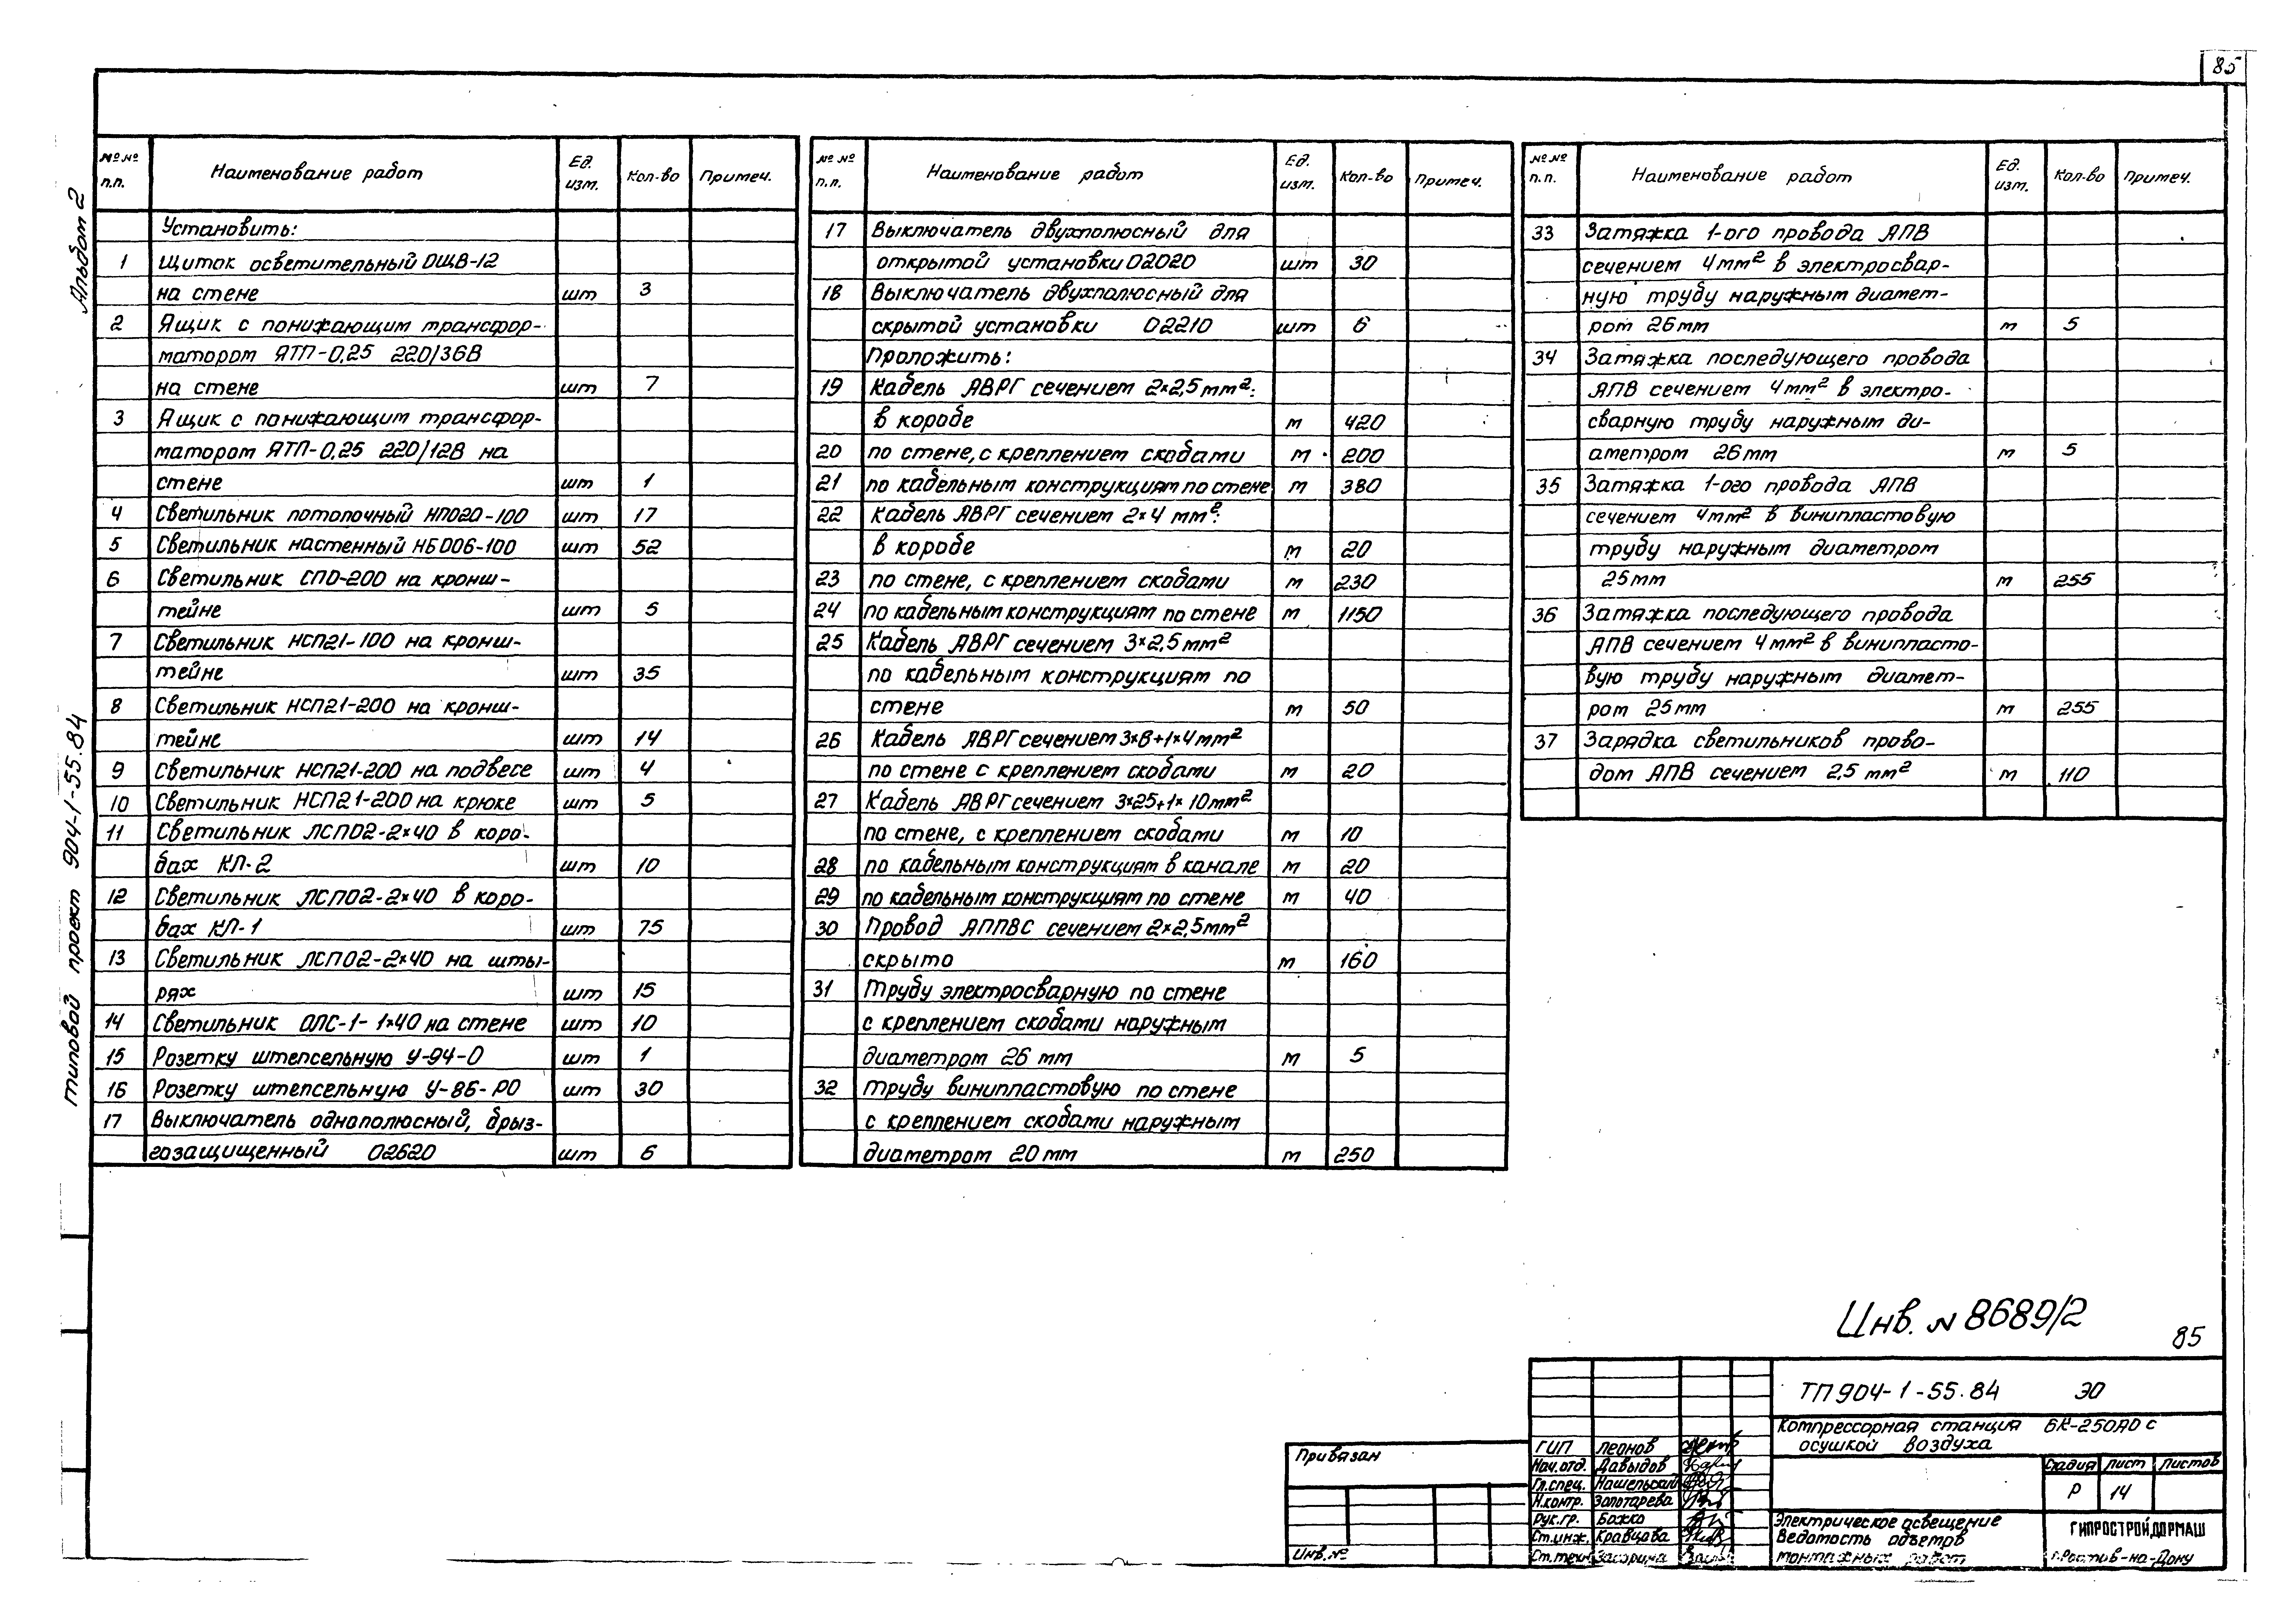 85
Альбом 2
типовой проект 904-1-55.84
№ № п.п. Наименование работ Ед. изм. Кол-во Примеч.
Установить:
1 Щиток осветительный ОЩВ-12
на стене шт 3
2 Ящик с понижающим трансфор-
матором ЯТП-0,25 220/36В
на стене шт 7
3 Ящик с понижающим трансфор-
матором ЯТП-0,25 220/12В на
стене шт 1
4 Светильник потолочный НПО20-100 шт 17
5 Светильник настенный НБО06-100 шт 52
6 Светильник СПО-200 на кронш-
тейне шт 5
7 Светильник НСП21-100 на кронш-
тейне шт 35
8 Светильник НСП21-200 на кронш-
тейне шт 14
9 Светильник НСП21-200 на подвесе шт 4
10 Светильник НСП21-200 на крюке шт 5
11 Светильник ЛСП02-2×40 в коро-
бах КЛ-2 шт 10
12 Светильник ЛСП02-2×40 в коро-
бах КЛ-1 шт 75
13 Светильник ЛСП02-2×40 на шты-
рях шт 15
14 Светильник ОЛС-1-1×40 на стене шт 10
15 Розетку штепсельную У-94-0 шт 1
16 Розетку штепсельную У-86-РО шт 30
17 Выключатель однополюсный, брыз-
гозащищенный 02620 шт 6
№ № п.п. Наименование работ Ед. изм. Кол-во Примеч.
17 Выключатель двухполюсный для
открытой установки 02020 шт 30
18 Выключатель двухполюсный для
скрытой установки 02210 шт 6
Проложить:
19 Кабель АВРГ сечением 2×2,5мм²:
в коробе м 420
20 по стене, с креплением скобами м 200
21 по кабельным конструкциям по стене м 380
22 Кабель АВРГ сечением 2×4 мм²:
в коробе м 20
23 по стене, с креплением скобами м 230
24 по кабельным конструкциям по стене м 1150
25 Кабель АВРГ сечением 3×2,5мм²
по кабельным конструкциям по
стене м 50
26 Кабель АВРГ сечением 3×6+1×4мм²
по стене с креплением скобами м 20
27 Кабель АВРГ сечением 3×25+1×10мм²
по стене, с креплением скобами м 10
28 по кабельным конструкциям в канале м 20
29 по кабельным конструкциям по стене м 40
30 Провод АППВС сечением 2×2,5мм²
скрыто м 160
31 Трубу электросварную по стене
с креплением скобами наружным
диаметром 26 мм м 5
32 трубу винипластовую по стене
с креплением скобами наружным
диаметром 20 мм м 250
№ № п.п. Наименование работ Ед. изм. Кол-во Примеч.
33 Затяжка 1-ого провода АПВ
сечением 4мм² в электросвар-
ную трубу наружным диамет-
ром 26мм м 5
34 Затяжка последующего провода
АПВ сечением 4мм² в электро-
сварную трубу наружным ди-
аметром 26мм м 5
35 Затяжка 1-ого провода АПВ
сечением 4мм² в винипластовую
трубу наружным диаметром
25мм м 255
36 Затяжка последующего провода
АПВ сечением 4мм² в винипласто-
вую трубу наружным диамет-
ром 25мм м 255
37 Зарядка светильников прово-
дом АПВ сечением 2,5 мм² м 110
Инв. N 8689/2
85
ТП 904-1-55.84 ЭО
Компрессорная станция 6К-250АО с
осушкой воздуха
Привязан
Инв. №
ГИП Леонов
Нач.отд. Давыдов
Гл.спец. Нашельский
Н.контр. Золотарева
Рук.гр. Божко
Ст.инж. Кравцова
Ст.техн Засорина
Стадия Лист Листов
Р 14
Электрическое освещение
Ведомость объемов
монтажных работ
ГИПРОСТРОЙДОРМАШ
г.Ростов-на-Дону